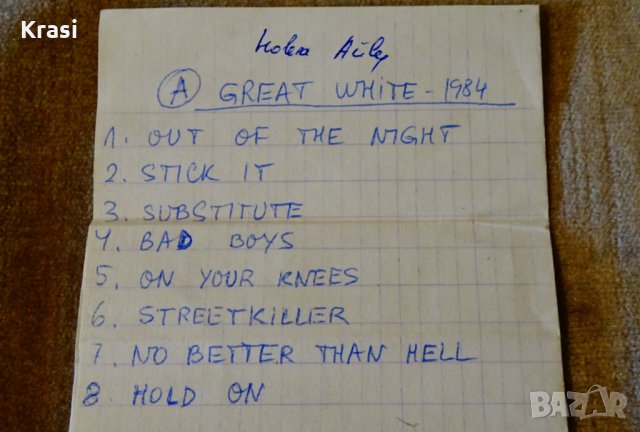 Krasi
A GREAT WHITE - 1984
1. OUT OF THE NIGHT
2. STICK IT
3. SUBSTITUTE
4. BAD BOYS
5. ON YOUR KNEES
6. STREETKILLER
7. NO BETTER THAN HELL
8 HOLD ON
BAZAR